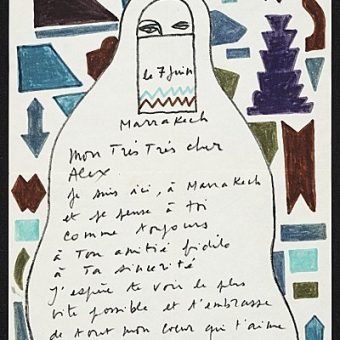 le 7 Juin
Marrakech
Mon Très Très cher
Alex
Je suis ici, à Marrakech
et je pense à toi
comme toujours
à Ton amitié fidèle
à Ta sincérité
J'espère te voir le plus
vite possible et t'embrasse
de tout mon cœur qui t'aime